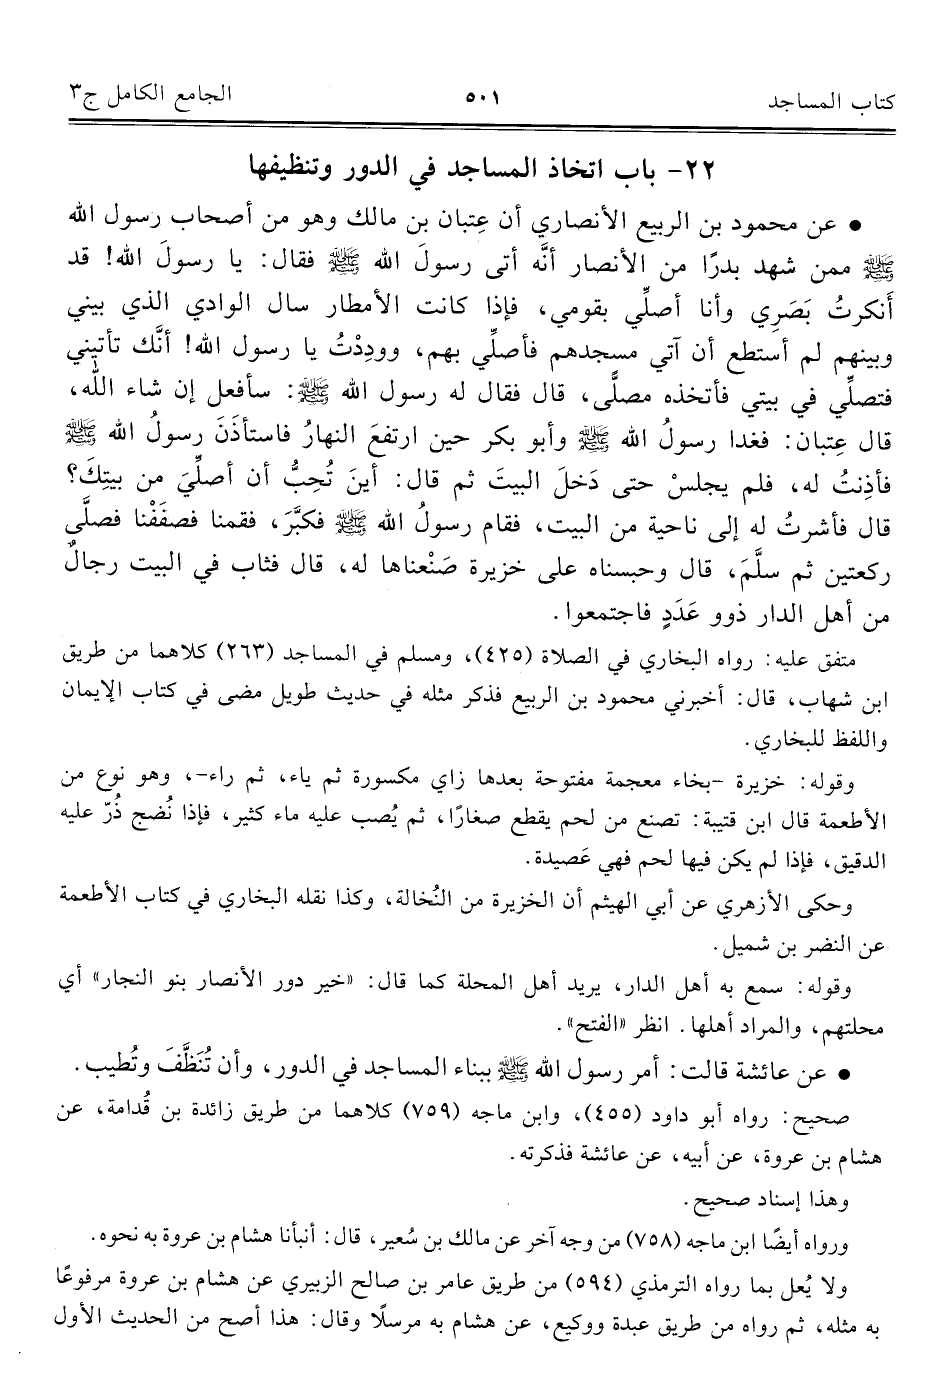 كتاب المساجد ٥٠١ الجامع الكامل ج٣
٢٢- باب اتخاذ المساجد في الدور وتنظيفها
• عن محمود بن الربيع الأنصاري أن عِتبان بن مالك وهو من أصحاب رسول الله
ﷺ ممن شهد بدرًا من الأنصار أنَّه أتى رسولَ الله ﷺ فقال: يا رسولَ الله! قد
أنكرتُ بَصَرِي وأنا أصلِّي بقومي، فإذا كانت الأمطار سال الوادي الذي بيني
وبينهم لم أستطع أن آتي مسجدهم فأصلِّي بهم، وودِدْتُ يا رسول الله! أنَّك تأتيني
فتصلِّي في بيتي فأتخذه مصلًّى، قال فقال له رسول الله ﷺ: سأفعل إن شاء الله،
قال عِتبان: فغدا رسولُ الله ﷺ وأبو بكر حين ارتفعَ النهارُ فاستأذَنَ رسولُ الله ﷺ
فأذِنتُ له، فلم يجلسْ حتى دَخلَ البيتَ ثم قال: أينَ تُحِبُّ أن أصلِّيَ من بيتِكَ؟
قال فأشرتُ له إلى ناحية من البيت، فقام رسولُ الله ﷺ فكبَّرَ، فقمنا فصفَفْنا فصلَّى
ركعتين ثم سلَّمَ، قال وحبسناه على خزيرة صَنْعناها له، قال فثاب في البيت رجالٌ
من أهل الدار ذوو عَدَدٍ فاجتمعوا.
متفق عليه: رواه البخاري في الصلاة (٤٢٥)، ومسلم في المساجد (٢٦٣) كلاهما من طريق
ابن شهاب، قال: أخبرني محمود بن الربيع فذكر مثله في حديث طويل مضى في كتاب الإيمان
واللفظ للبخاري.
وقوله: خزيرة -بخاء معجمة مفتوحة بعدها زاي مكسورة ثم ياء، ثم راء-، وهو نوع من
الأطعمة قال ابن قتيبة: تصنع من لحم يقطع صغارًا، ثم يُصب عليه ماء كثير، فإذا نُضج ذُرّ عليه
الدقيق، فإذا لم يكن فيها لحم فهي عَصيدة.
وحكى الأزهري عن أبي الهيثم أن الخزيرة من النُخالة، وكذا نقله البخاري في كتاب الأطعمة
عن النضر بن شميل.
وقوله: سمع به أهل الدار، يريد أهل المحلة كما قال: «خير دور الأنصار بنو النجار» أي
محلتهم، والمراد أهلها. انظر «الفتح».
• عن عائشة قالت: أمر رسول الله ﷺ ببناء المساجد في الدور، وأن تُنَظَّفَ وتُطيب.
صحيح: رواه أبو داود (٤٥٥)، وابن ماجه (٧٥٩) كلاهما من طريق زائدة بن قُدامة، عن
هشام بن عروة، عن أبيه، عن عائشة فذكرته.
وهذا إسناد صحيح.
ورواه أيضًا ابن ماجه (٧٥٨) من وجه آخر عن مالك بن سُعير، قال: أنبأنا هشام بن عروة به نحوه.
ولا يُعل بما رواه الترمذي (٥٩٤) من طريق عامر بن صالح الزبيري عن هشام بن عروة مرفوعًا
به مثله، ثم رواه من طريق عبدة ووكيع، عن هشام به مرسلًا وقال: هذا أصح من الحديث الأول